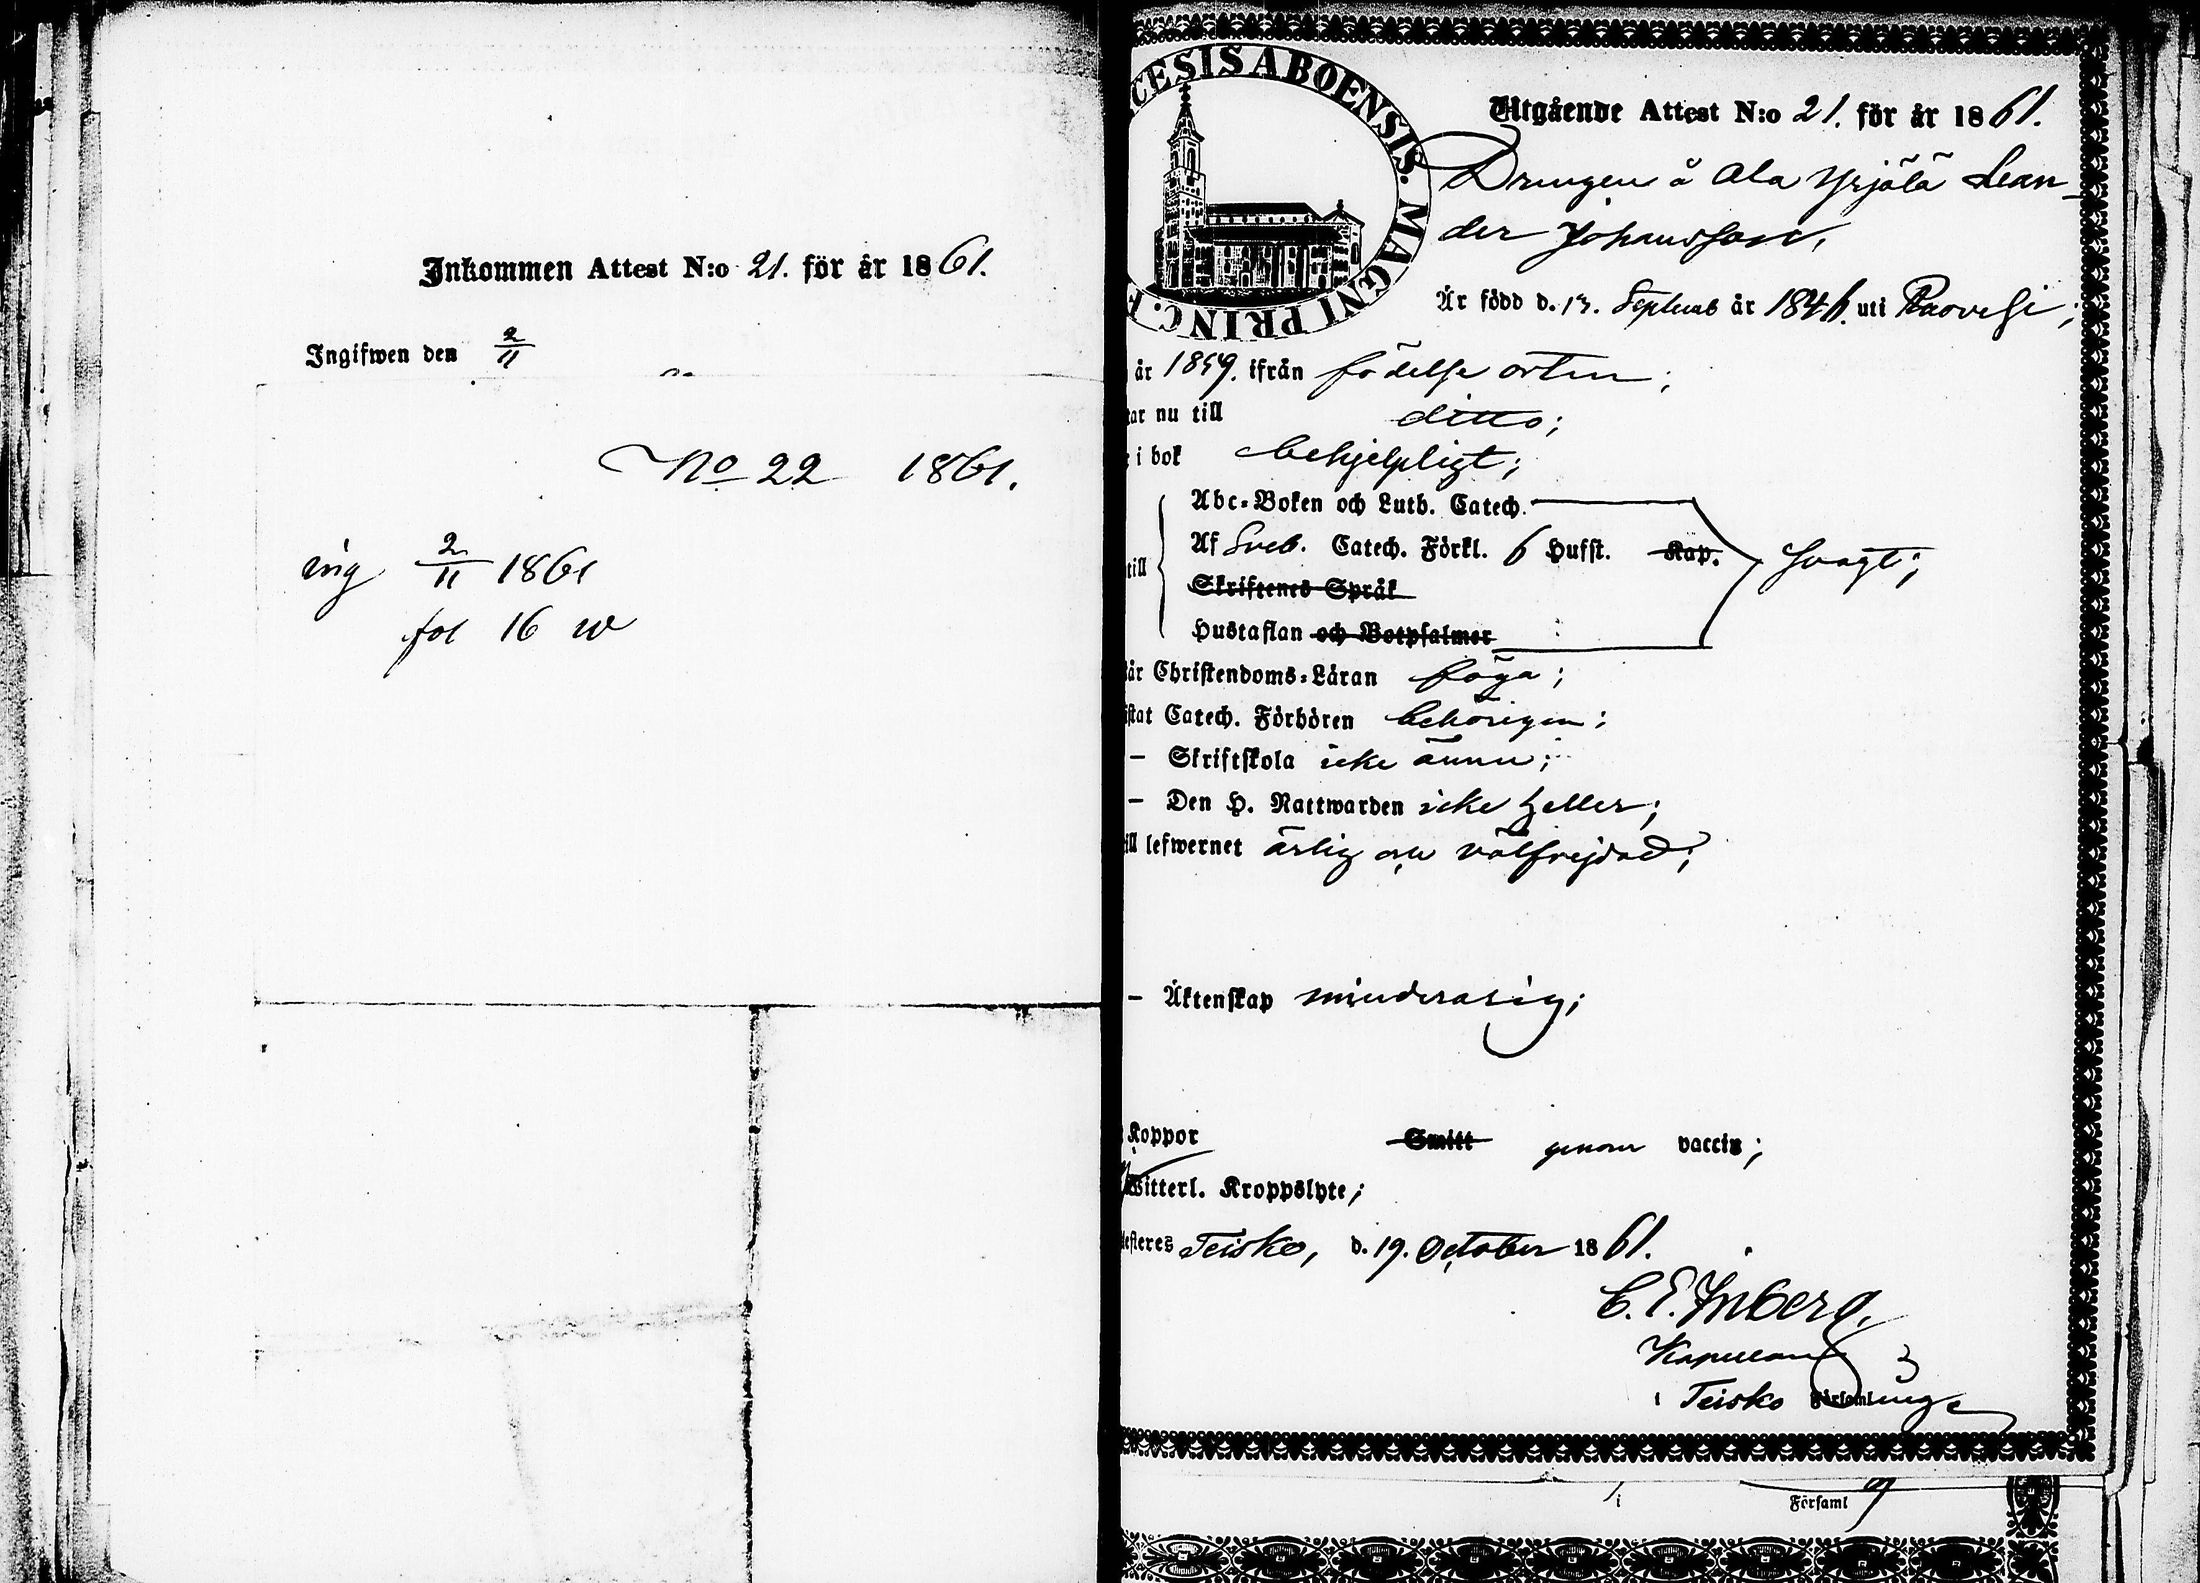 Inkommen Attest N:o 21. för år 1861.
Ingifwen den 2/11
No 22 1861.
ing 2/11 1861
fol 16 w
CESIS ABOENSIS. MAGNI PRINC. F
Utgående Attest N:o 21. för år 1861.
Drengen å Ala Yrjälä Lean-
der Johansson,
Är född d. 13. Septemb år 1846. uti Ruovesi;
år 1859. ifrån födelse orten;
tar nu till ditto;
e i bok behjelpligt;
Abc-Boken och Luth. Catech.
till Af Sveb. Catech. Förkl. 6 Hufst. Kap. svagt;
Skriftenes Språk
Hustaflan och Botpsalmer
tår Christendoms-Läran föga;
istat Catech. Förhören behörigen;
– Skriftskola icke ännu;
– Den H. Nattwarden icke heller;
ill lefwernet ärlig och välfrejdad;
– Äktenskap minderårig;
Koppor Smitt genom vaccin;
Witterl. Kroppslyte;
testeres Teisko, d. 19. October 1861.
C. E. Inberg,
Kapellan
i Teisko Församling
i Församl